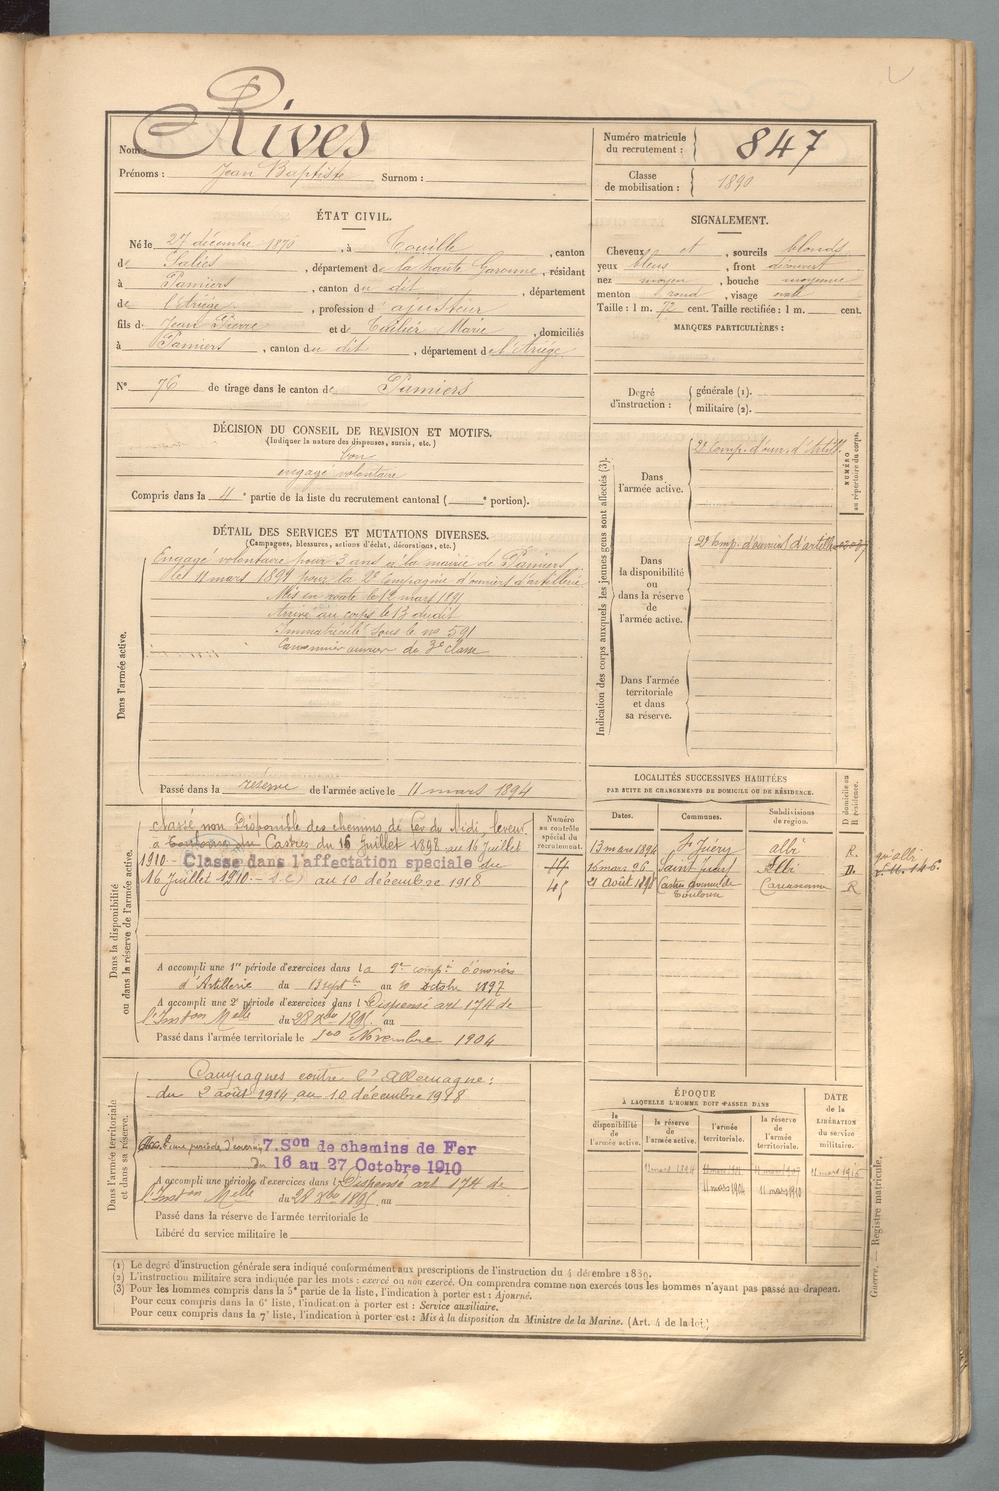 Rives
Nom :
Prénoms : Jean Baptiste Surnom :
Numéro matricule
du recrutement : 847
Classe
de mobilisation : 1890
ÉTAT CIVIL.
Né le 27 décembre 1870, à Touille, canton
de Salies, département de la haute Garonne, résidant
à Pamiers, canton du dit, département
de l'Ariège, profession d'ajusteur
fils de Jean Pierre et de Marie, domiciliés
à Pamiers, canton du dit, département de l'Ariège
N° 76 de tirage dans le canton de Pamiers
DÉCISION DU CONSEIL DE REVISION ET MOTIFS.
(Indiquer la nature des dispenses, sursis, etc.)
Bon
engagé volontaire
Compris dans la 4e partie de la liste du recrutement cantonal ( e portion).
SIGNALEMENT.
Cheveux et, sourcils blonds
yeux bleus, front découvert
nez moyen, bouche moyenne
menton rond, visage ovale
Taille : 1 m. 72 cent. Taille rectifiée : 1 m. cent.
MARQUES PARTICULIÈRES :
Degré
d'instruction : générale (1).
militaire (2).
DÉTAIL DES SERVICES ET MUTATIONS DIVERSES.
(Campagnes, blessures, actions d'éclat, décorations, etc.)
Dans l'armée active.
Engagé volontaire pour 3 ans à la mairie de Pamiers
le 11 mars 1891 pour la 2e Compagnie d'ouvriers d'artillerie
Mis en route le 12 mars 1891
Arrivé au corps le 13 dudit
Immatriculé sous le no 591
Canonnier ouvrier de 3e classe
Passé dans la réserve de l'armée active le 11 mars 1894
Indication des corps auxquels les jeunes gens sont affectés (3).
NUMÉRO
au répertoire du corps.
Dans
l'armée active.
2e Comp. d'ouv. d'Artill.
Dans
la disponibilité
ou
dans la réserve
de
l'armée active.
2e Comp. d'ouvriers d'artillerie
Dans l'armée
territoriale
et dans
sa réserve.
Dans la disponibilité
ou dans la réserve de l'armée active.
Classé non Disponible des chemins de fer du Midi,
à Castres du 16 Juillet 1898 au 16 Juillet
1910 - Classé dans l'affectation spéciale du
16 Juillet 1910 - au 10 décembre 1918
Numéro
au contrôle
spécial du
recrutement.
A accompli une 1re période d'exercices dans la 9e compie d'ouvriers
d'Artillerie du 13 septbre au 10 octobre 1897
A accompli une 2e période d'exercices dans l Dispensé art 174 de
l'Inston Melle du 28 Xbre 1895 au
Passé dans l'armée territoriale le 1er Novembre 1904
LOCALITÉS SUCCESSIVES HABITÉES
PAR SUITE DE CHANGEMENTS DE DOMICILE OU DE RÉSIDENCE.
Dates. Communes. Subdivisions
de région. D domicile ou
R résidence.
13 mars 1894 St Juéry albi R.
16 mars 96 Saint Juéry Albi
21 août 1898 Castres avenue de
Toulouse Carcassonne R
Dans l'armée territoriale
et dans sa réserve.
Campagnes contre l'Allemagne :
du 2 août 1914 au 10 décembre 1918
7. Son de chemins de Fer
du 16 au 27 Octobre 1910
A accompli une période d'exercices dans l Dispensé art 174 de
l'Inston Melle du 28 Xbre 1895 au
Passé dans la réserve de l'armée territoriale le
Libéré du service militaire le
ÉPOQUE
À LAQUELLE L'HOMME DOIT PASSER DANS
la
disponibilité
de
l'armée active. la réserve
de
l'armée active. l'armée
territoriale. la réserve
de
l'armée
territoriale.
DATE
de la
LIBÉRATION
du service
militaire.
11 mars 1894 11 mars 1916
11 mars 1904 11 mars 1910
(1) Le degré d'instruction générale sera indiqué conformément aux prescriptions de l'instruction du 4 décembre 1889.
(2) L'instruction militaire sera indiquée par les mots : exercé ou non exercé. On comprendra comme non exercés tous les hommes n'ayant pas passé au drapeau.
(3) Pour les hommes compris dans la 5e partie de la liste, l'indication à porter est : Ajourné.
Pour ceux compris dans la 6e liste, l'indication à porter est : Service auxiliaire.
Pour ceux compris dans la 7e liste, l'indication à porter est : Mis à la disposition du Ministre de la Marine. (Art. 4 de la loi)
Guerre. — Registre matricule.